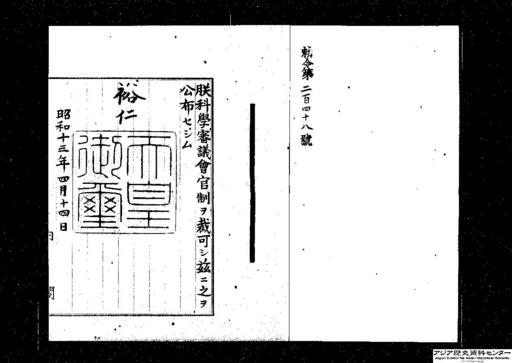 勅令第二百四十八號
朕科學審議會官制ヲ裁可シ茲ニ之ヲ
公布セシム
裕仁
天皇御璽
昭和十三年四月十四日
内閣
アジア歴史資料センター
Japan Center for Asian Historical Records